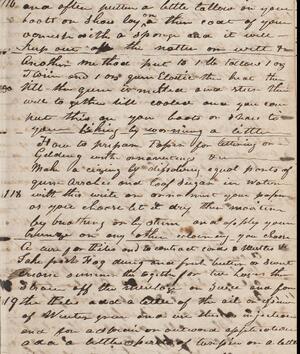 116 and after putten a little tallow on your
boots or Shoes lay on thin coat of your
varnish with a sponge and it will
keep out all the water on wet &
Another method put to 1 lb tallow 1 oz
Rosin and 1 oz gum Elastic then heat the
till the gum is melted and stir then
well together till cooled and you can
put this on your boots or shoes to
your liking by warming a little
How to prepare Paper for lettering or
Gelding with ornaments
Make a sizing by disolving equal parts of
gum Arabic and loaf Sugar in water
118 with this write or ornament your paper
as you choose let it dry then moisten
by breathing on by steam and apply your
bronze or any other coloring you choose
A cure for Piles and to contract
Take fresh Hog dung and fresh butter or sweet
cream simmer together for two hours then
strain off the
119 the Piles add a little of the oil or
of Winter green and use this as injection
and for as an outward application
add a little spirits of turpentine